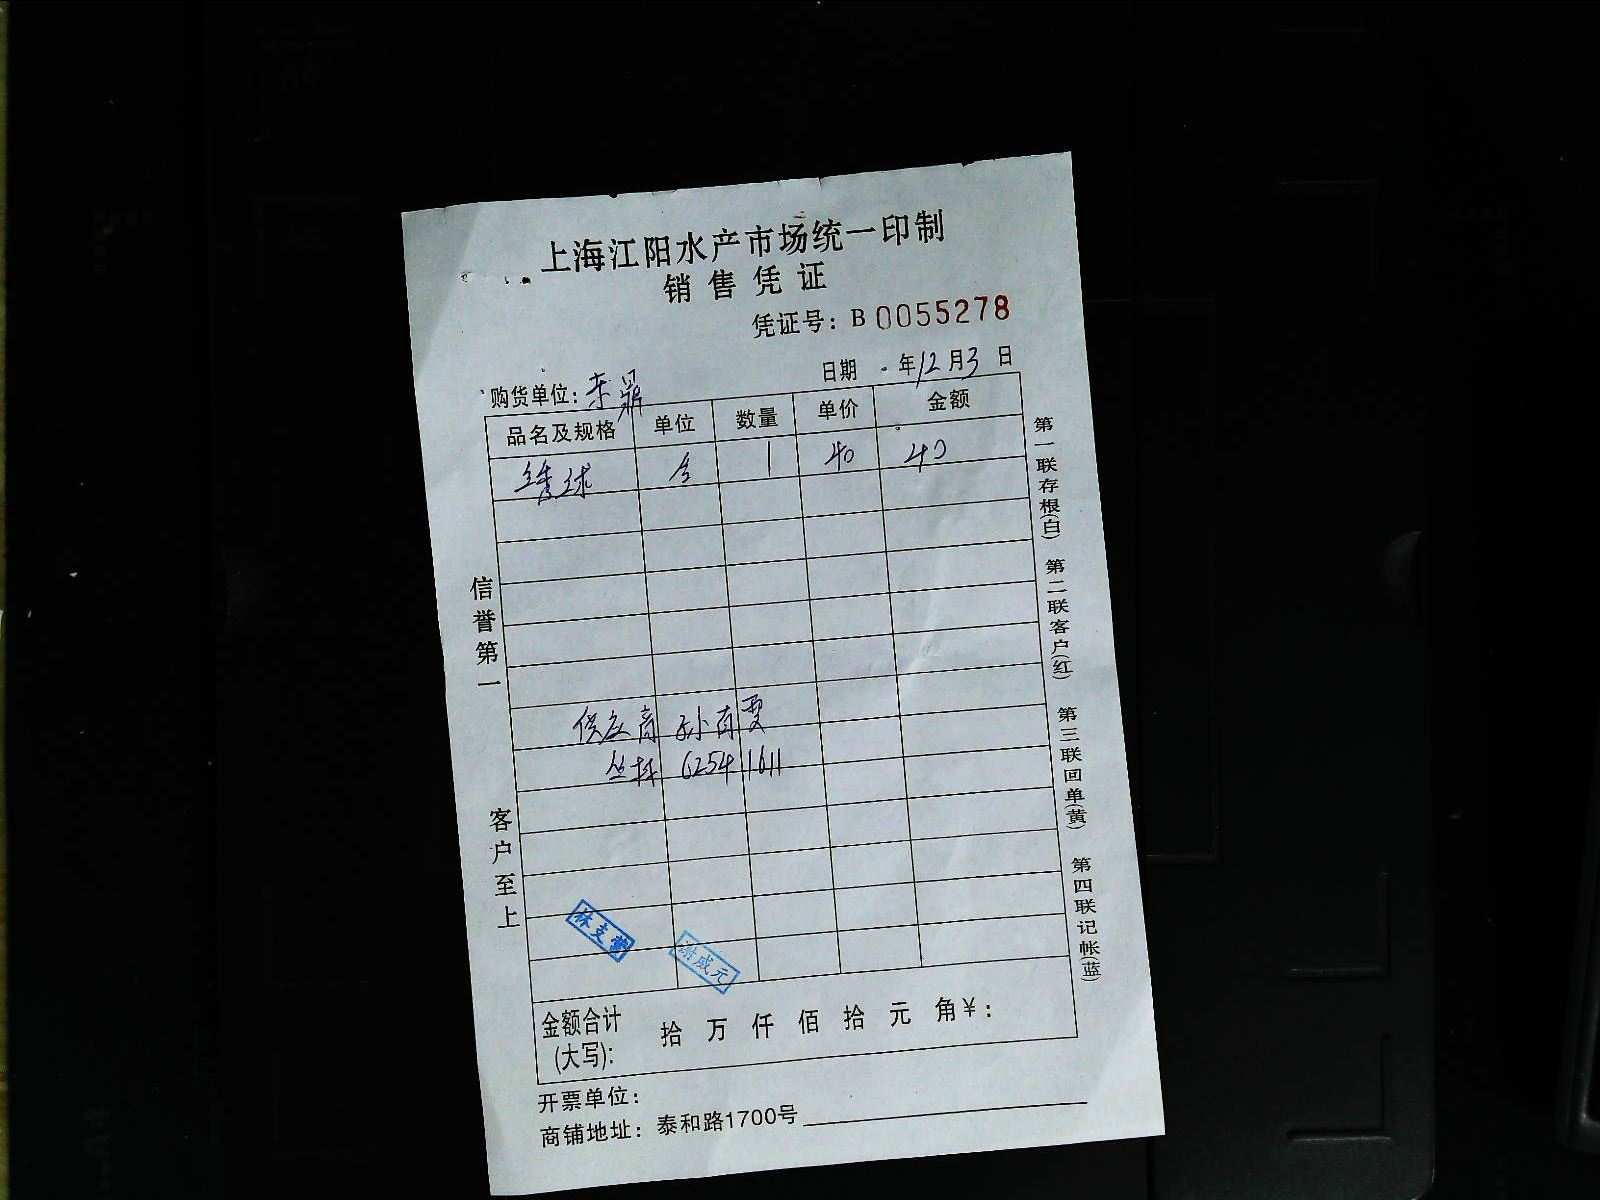 上海江阳水产市场统一印制
销售凭证
凭证号：B 0055278
购货单位： 日期 年12月3日
品名及规格 单位 数量 单价 金额
绣球 1 40 40
供应商 孙
62541611
林支营
谢成元
金额合计 拾 万 仟 佰 拾 元 角 ¥：
(大写)：
开票单位：
商铺地址：泰和路1700号
信誉第一
客户至上
第一联存根(白) 第二联客户(红) 第三联回单(黄) 第四联记帐(蓝)